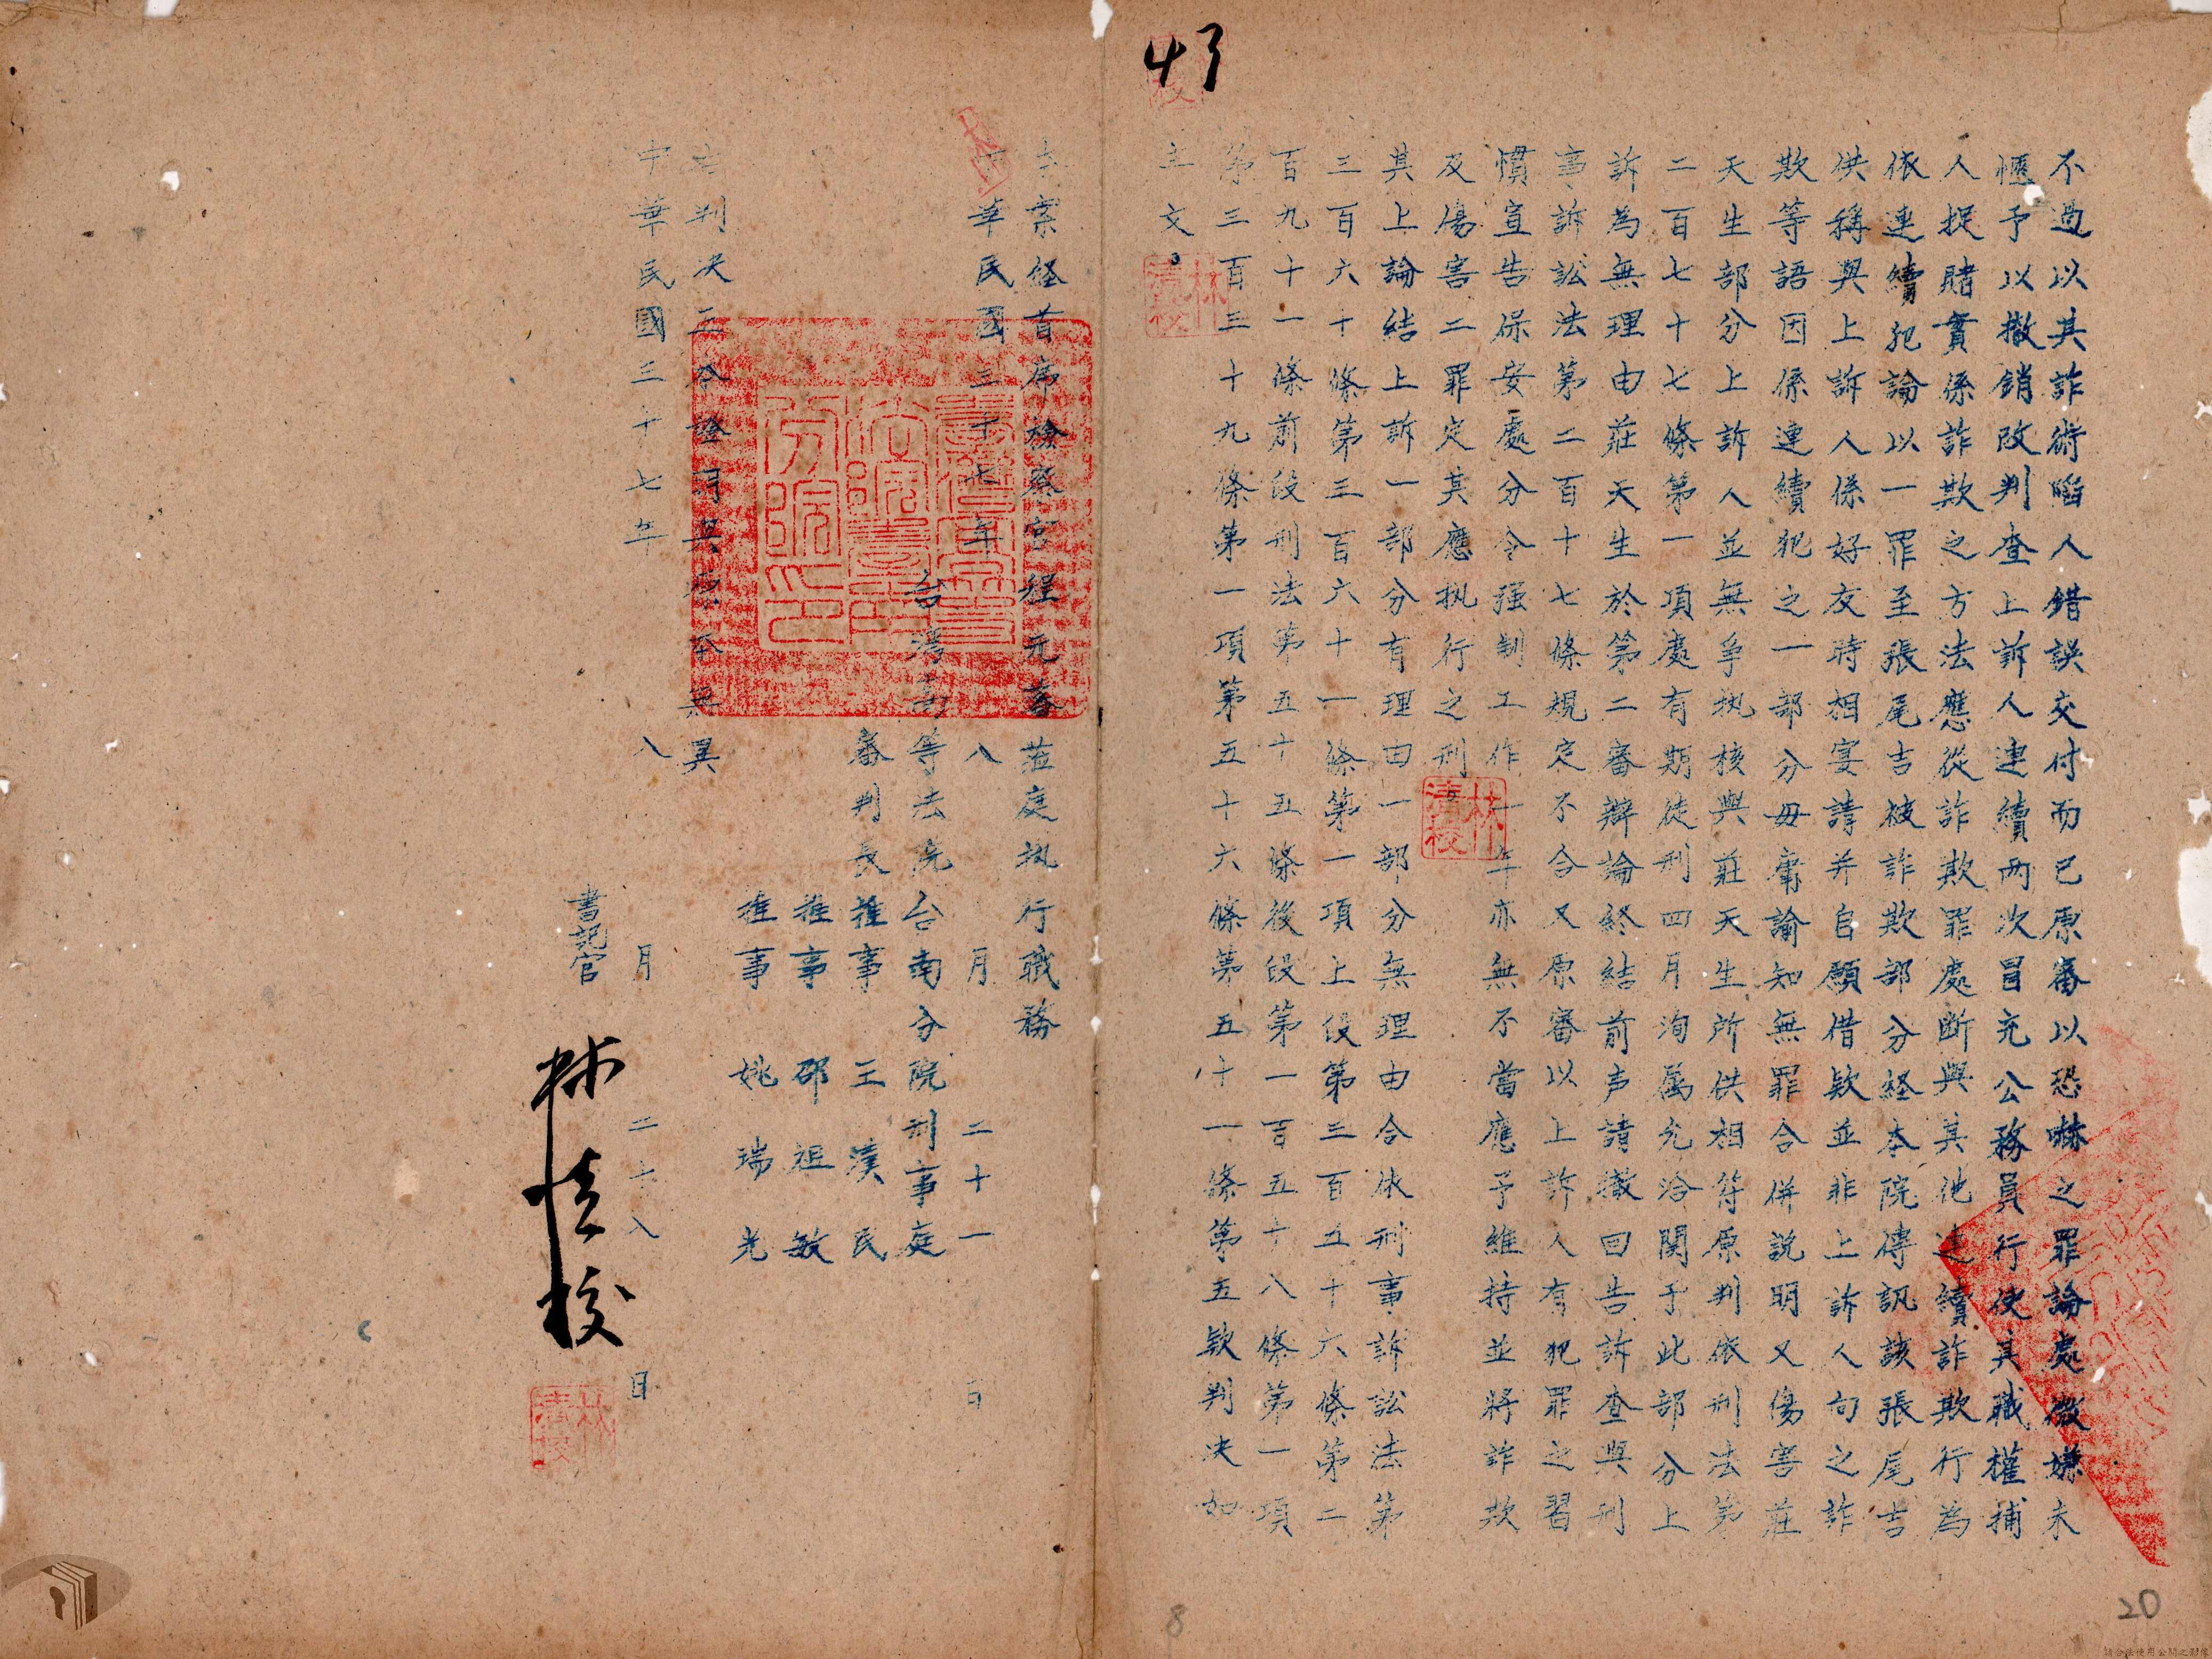 43
不過以其詐術陷人錯誤交付而已原審以恐嚇之罪論處微嫌未
愜予以撤銷改判查上訴人連續两次冒充公務員行使其職權捕
人捉賭實係詐欺之方法應從詐欺罪處断與其他連續詐欺行為
依連續犯論以一罪至張尾吉被詐欺部分経本院傳訊該張尾吉
供稱與上訴人係好友時相宴請并自願借欵並非上訴人向之詐
欺等語因係連續犯之一部分毋庸諭知無罪合併説明又傷害莊
天生部分上訴人並無爭执核與莊天生所供相符原判依刑法第
二百七十七條第一項處有期徒刑四月洵属允洽関于此部分上
訴為無理由莊天生於第二審辯論終結前声請撤回告訴查與刑
事訴訟法第二百十七條規定不合又原審以上訴人有犯罪之習
慣宣告保安處分令强制工作一年亦無不當應予維持並將詐欺
及傷害二罪定其應执行之刑
其上論結上訴一部分有理由一部分無理由合依刑事訴訟法第
三百六十條第三百六十一條第一項上段第三百五十六條第二
百九十一條前段刑法第五十五條後段第一百五十八條第一項
第三百三十九條第一項第五十六條第五十一條第五欵判决如
主文
本案経首席檢察官程元藩蒞庭执行職務
中華民國三十七年八月二十一日
台灣高等法院台南分院刑事庭
審判長推事王漢民
推事邵祖敏
推事姚瑞光
右判决正本證明與原本無異
中華民國三十七年八月二十八日
書記官林清校
林清校
林清校
林清校
8
20
請合法使用公開之影像